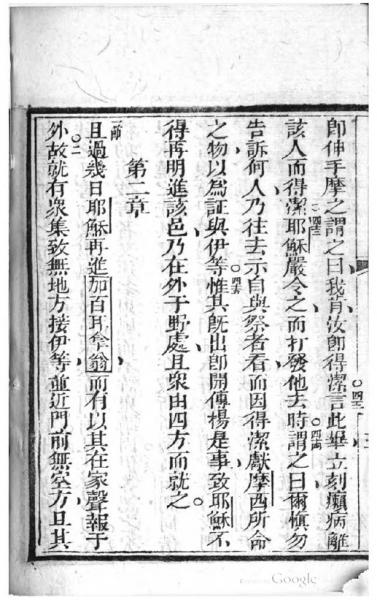 即伸手摩之謂之曰我肯汝即得潔〇四二言此畢立刻癩病離
該人而得潔四三耶穌嚴令之而打發他去時〇四四謂之曰爾慎勿
告訴何人乃往去示自與祭者看而因得潔獻摩西所命
之物以為証與伊等〇四五惟其既出即開傳楊是事致耶穌不
得再明進該邑乃在外于野處且衆由四方而就之。
第二章
一節且過幾日耶穌再進加百耳拿翁而有以其在家聲報于
外〇二故就有衆集致無地方接伊等並近門前無空方且其
Google